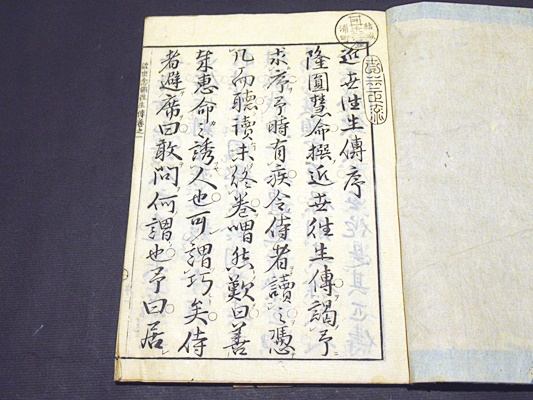 近世往生傳序
隆圓慧命撰近世往生傳謁予
求序予時有疾令侍者讀之憑
几而聽讀未終卷喟然歎曰善
矣惠命之誘人也可謂巧矣侍
者避席曰敢問何謂也予曰居